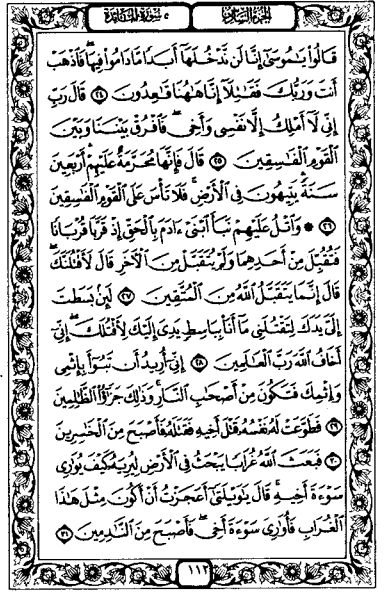 الجزء السادس
٥ سورة المائدة
قَالُوا۟ يَـٰمُوسَىٰٓ إِنَّا لَن نَّدْخُلَهَآ أَبَدًا مَّا دَامُوا۟ فِيهَا ۖ فَٱذْهَبْ
أَنتَ وَرَبُّكَ فَقَـٰتِلَآ إِنَّا هَـٰهُنَا قَـٰعِدُونَ ٢٤ قَالَ رَبِّ
إِنِّى لَآ أَمْلِكُ إِلَّا نَفْسِى وَأَخِى ۖ فَٱفْرُقْ بَيْنَنَا وَبَيْنَ
ٱلْقَوْمِ ٱلْفَـٰسِقِينَ ٢٥ قَالَ فَإِنَّهَا مُحَرَّمَةٌ عَلَيْهِمْ ۛ أَرْبَعِينَ
سَنَةً ۛ يَتِيهُونَ فِى ٱلْأَرْضِ ۚ فَلَا تَأْسَ عَلَى ٱلْقَوْمِ ٱلْفَـٰسِقِينَ
٢٦ ۞ وَٱتْلُ عَلَيْهِمْ نَبَأَ ٱبْنَىْ ءَادَمَ بِٱلْحَقِّ إِذْ قَرَّبَا قُرْبَانًا
فَتُقُبِّلَ مِنْ أَحَدِهِمَا وَلَمْ يُتَقَبَّلْ مِنَ ٱلْـَٔاخَرِ قَالَ لَأَقْتُلَنَّكَ ۖ
قَالَ إِنَّمَا يَتَقَبَّلُ ٱللَّهُ مِنَ ٱلْمُتَّقِينَ ٢٧ لَئِنۢ بَسَطتَ
إِلَىَّ يَدَكَ لِتَقْتُلَنِى مَآ أَنَا۠ بِبَاسِطٍ يَدِىَ إِلَيْكَ لِأَقْتُلَكَ ۖ إِنِّىٓ
أَخَافُ ٱللَّهَ رَبَّ ٱلْعَـٰلَمِينَ ٢٨ إِنِّىٓ أُرِيدُ أَن تَبُوٓأَ بِإِثْمِى
وَإِثْمِكَ فَتَكُونَ مِنْ أَصْحَـٰبِ ٱلنَّارِ ۚ وَذَٰلِكَ جَزَٰٓؤُا۟ ٱلظَّـٰلِمِينَ
٢٩ فَطَوَّعَتْ لَهُۥ نَفْسُهُۥ قَتْلَ أَخِيهِ فَقَتَلَهُۥ فَأَصْبَحَ مِنَ ٱلْخَـٰسِرِينَ
٣٠ فَبَعَثَ ٱللَّهُ غُرَابًا يَبْحَثُ فِى ٱلْأَرْضِ لِيُرِيَهُۥ كَيْفَ يُوَٰرِى
سَوْءَةَ أَخِيهِ ۚ قَالَ يَـٰوَيْلَتَىٰٓ أَعَجَزْتُ أَنْ أَكُونَ مِثْلَ هَـٰذَا
ٱلْغُرَابِ فَأُوَٰرِىَ سَوْءَةَ أَخِى ۖ فَأَصْبَحَ مِنَ ٱلنَّـٰدِمِينَ ٣١
١١٢